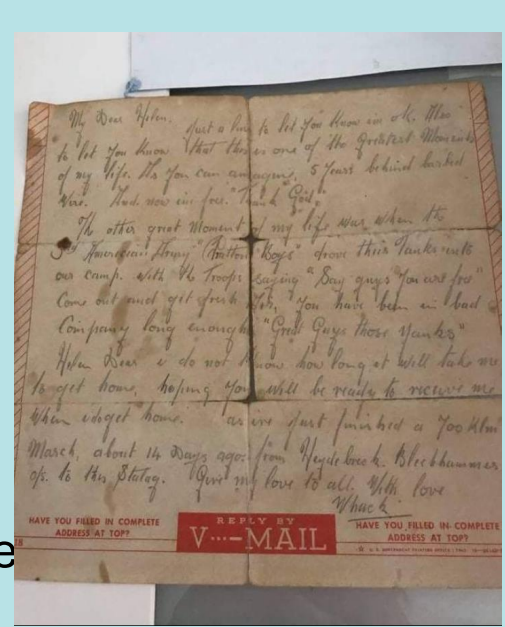 My Dear Helen.
Just a line to let you know im ok. Also
to let you know that this is one of the Greatest Moments
of my life. As you can amagen, 5 years behind barbed
Wire. And now im free. "Thank God."
The other great Moment of my life was when the
3rd Amearican Army "Pratton Boys" drove their Tanks into
our camp. with the Troops saying "Say guys you are free"
Come out and get fresh "You have been in bad
Company long enough" "Great Guys those Yanks"
Helen Dear i do not know how long it will take me
to get home, hoping you will be ready to receive me
when i do get home. as ive just finished a 700 klm
March, about 14 Days ago. from Heydebreck. Blechhammer
o/s. to this Stalag. Give my love to all. With love
Whack
HAVE YOU FILLED IN COMPLETE
ADDRESS AT TOP?
REPLY BY
V···—MAIL
HAVE YOU FILLED IN COMPLETE
ADDRESS AT TOP?
e